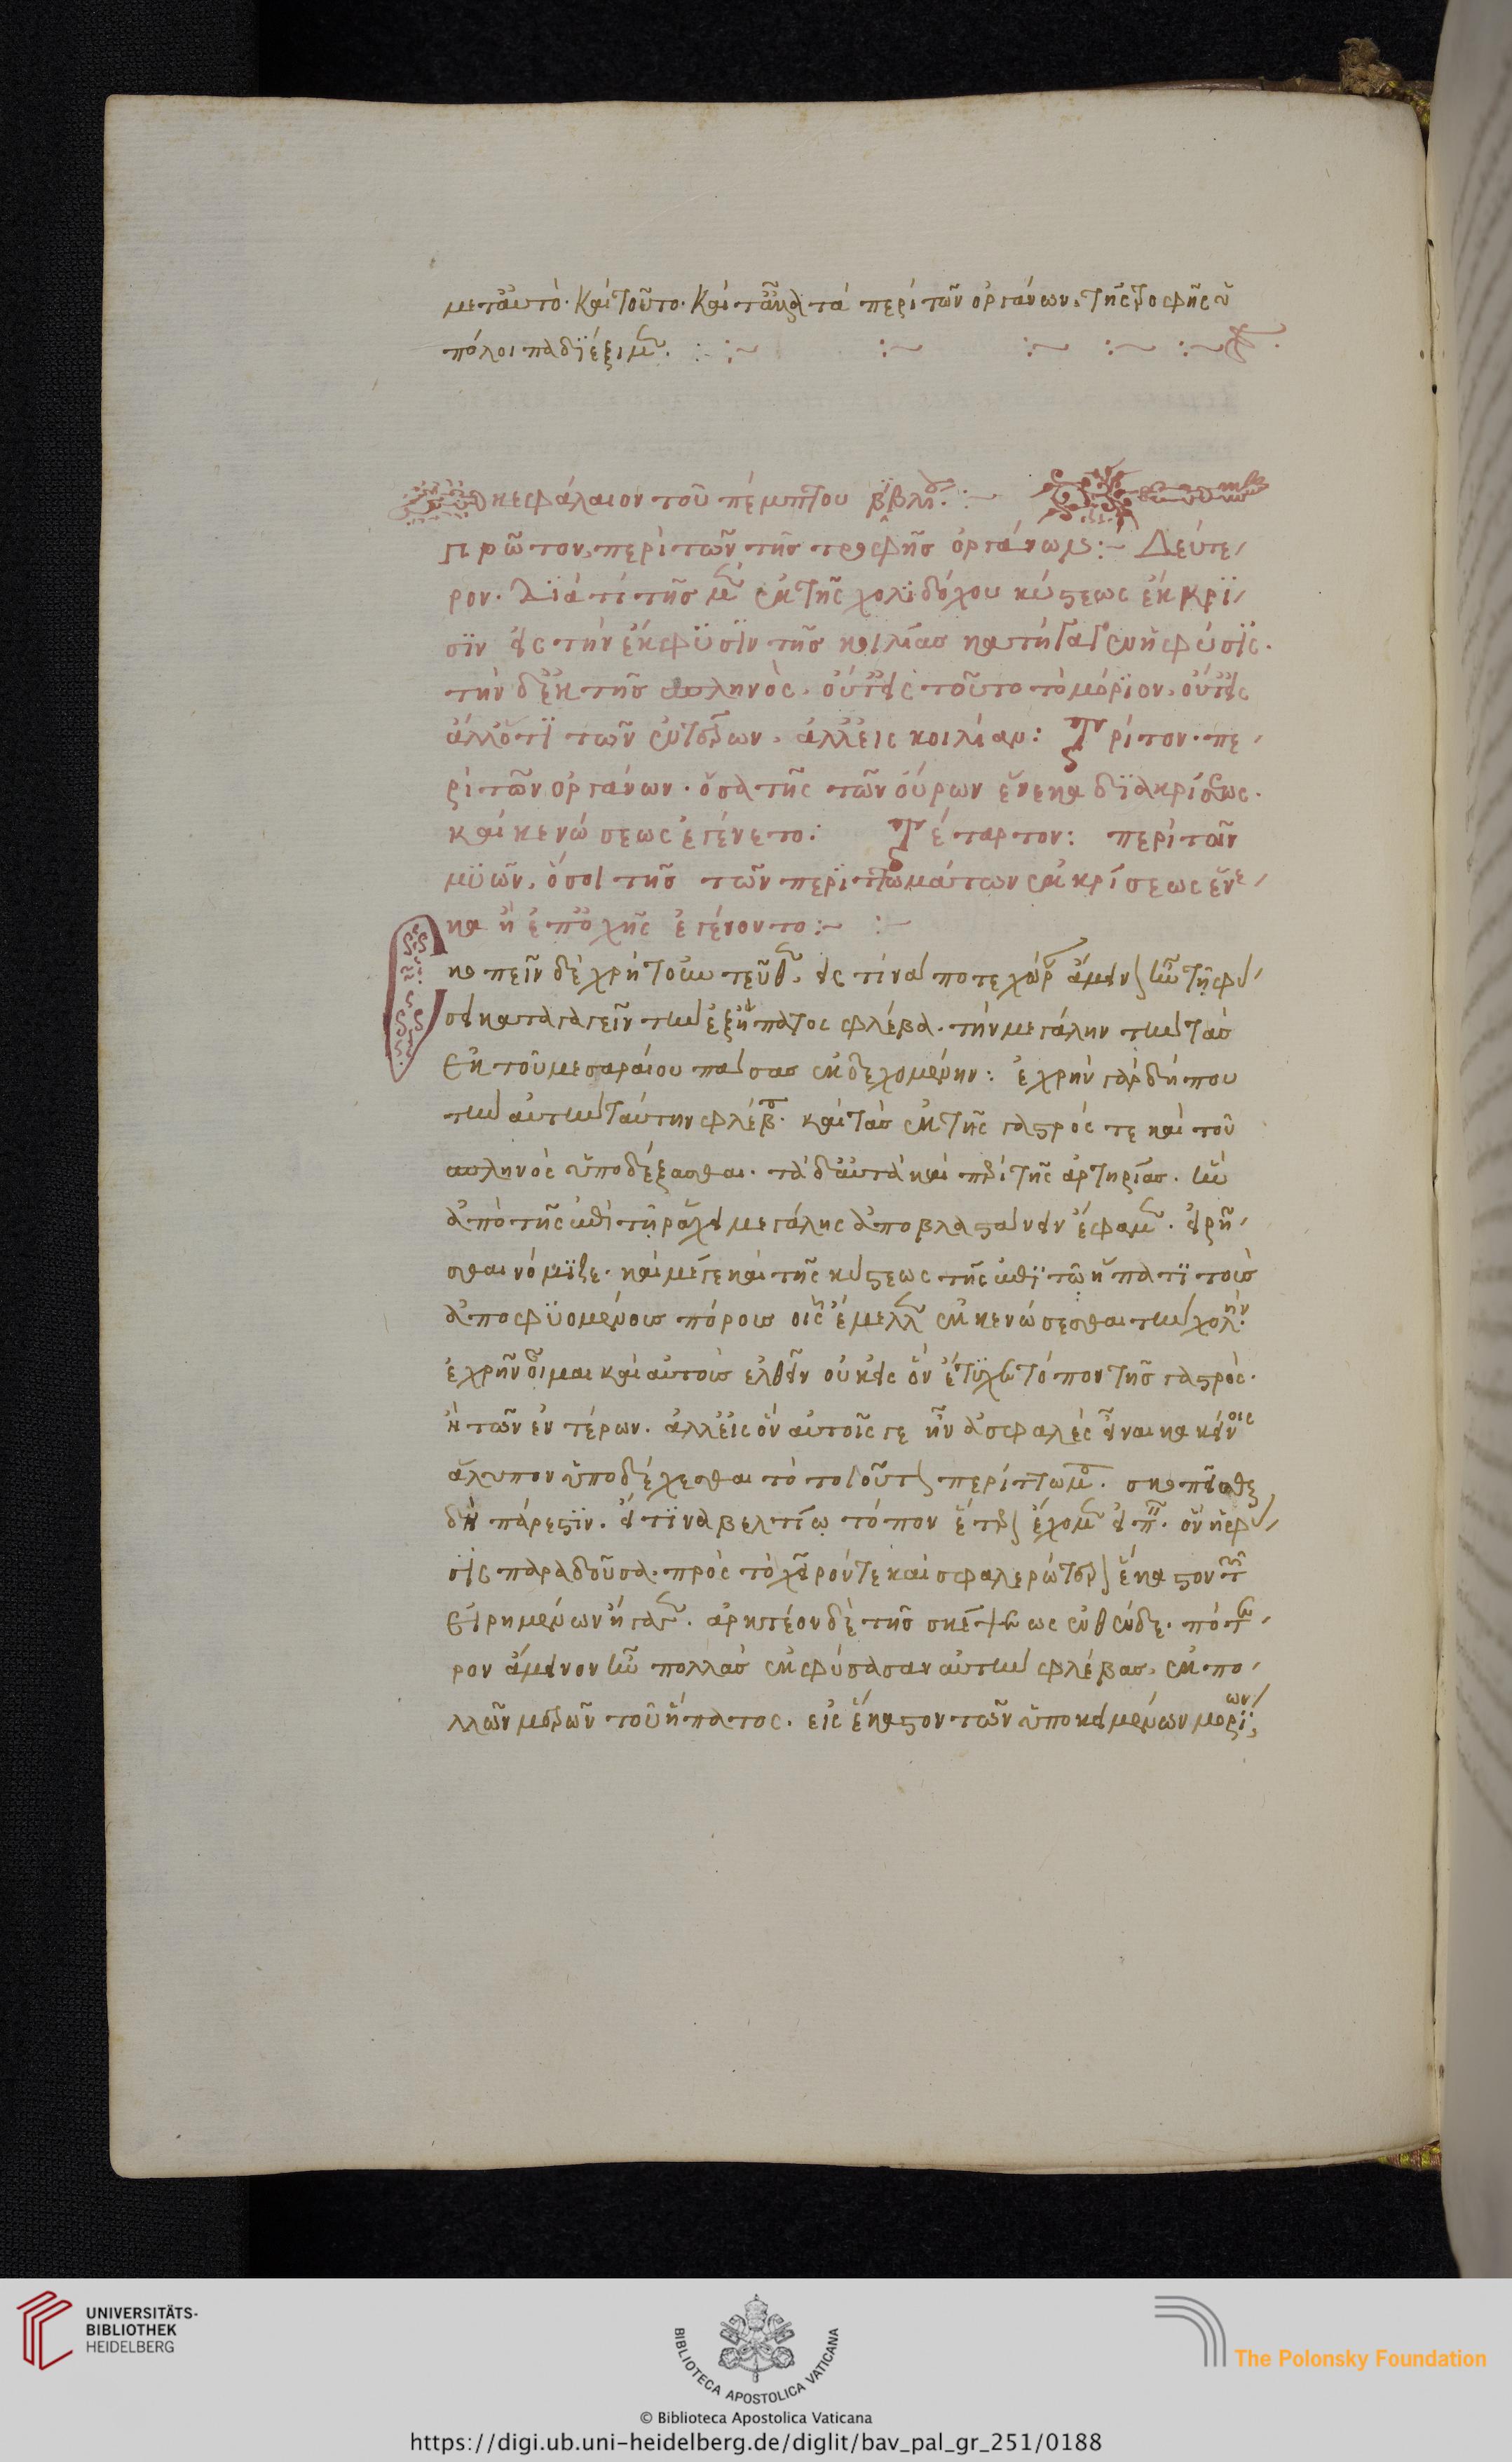 μετ' αὐτὸ. καὶ τοῦτο. καὶ ταῦτα τὰ περὶ τῶν ὀργάνων, τῆς τροφῆς ὑ
πόλοιπα διέξιμεν.
κεφάλαιον τοῦ πέμπτου βιβλίου :~
πρῶτον, περὶ τῶν τῆς τροφῆς ὀργάνων :~ Δεύτε
ρον. Διὰ τί τῆς μὲν ἐκ τῆς χοληδόχου κύστεως ἔκκρι
σιν εἰς τὴν ἔκφυσιν τῆς κοιλίας ἡ φύσις.
τὴν δ' ἐκ τῆς σπληνὸς. οὔτ' εἰς τοῦτο τὸ μόριον, οὔτ' εἰς
ἄλλό τι τῶν ἐντέρων, ἀλλ' εἰς κοιλίαν : Τρίτον. πε
ρὶ τῶν ὀργάνων. ὅσα τῆς τῶν οὔρων ἕνεκα διακρίσεως.
καὶ κενώσεως ἐγένετο : Τέταρτον : περὶ τῶν
μυῶν, ὅσοι τῆς τῶν περιττωμάτων ἐκκρίσεως ἕνε
κα ἢ ἐποχῆς ἐγένοντο :~ :~
σκοπεῖν δὲ χρὴ τοὐντεῦθεν, εἰς τίνα ποτὲ χώραν ἄμεινον ἦν τῇ φύ
σει καταγαγεῖν τὴν ἐξ ἥπατος φλέβα. τὴν μεγάλην τὴν τὰς
ἐκ τοῦ μεσαραίου πάσας ἐκδεχομένην : ἐχρῆν γὰρ δή που
τὴν αὐτὴν ταύτην φλέβα. καὶ τὰς ἐκ τῆς γαστρός τε καὶ τοῦ
σπληνὸς ὑποδέξασθαι. τὰ δ' αὐτὰ καὶ περὶ τῆς ἀρτηρίας. ἣν
ἀπὸ τῆς ἐπὶ τῇ ῥάχει μεγάλης ἀποβλαστάνειν ἔφαμεν. εἰρῆ
σθαι νόμιζε. καὶ μέν γε καὶ τῆς κύστεως τῆς ἐπὶ τῷ ἥπατι τοῖς
ἀποφυομένοις πόροις οἷς ἔμελλεν ἐκκενώσεσθαι τὴν χολήν.
ἐχρῆν οἶμαι καὶ αὐτοῖς ἐλθεῖν οὐκ εἰς ὃν ἔτυχεν τόπον τῆς γαστρὸς.
ἢ τῶν ἐντέρων. ἀλλ' εἰς ὃν αὐτοῖς γε ἦν ἀσφαλὲς εἶναι κἀκείνοις
ἄλυπον ὑποδέχεσθαι τὸ τοιοῦτον περίττωμα. σκοπεῖσθαι
δὴ πάρεστιν. εἴ τινα βελτίω τόπον ἕτερον ἔχομεν εἰπεῖν. ὃν ἡ φύ
σις παραδοῦσα. πρὸς τὸ χεῖρόν τε καὶ σφαλερώτερον ἕκαστον τῶν
εἰρημένων ἤγαγεν. ἀρκτέον δὲ τῆς σκέψεως ἐνθένδε. πότε
ρον ἄμεινον ἦν πολλὰς ἐκφύσασαν αὐτὴν φλέβας, ἐκ πο
λλῶν μερῶν τοῦ ἥπατος. εἰς ἕκαστον τῶν ὑποκειμένων μορίων
UNIVERSITÄTS-
BIBLIOTHEK
HEIDELBERG
BIBLIOTECA APOSTOLICA VATICANA
The Polonsky Foundation
© Biblioteca Apostolica Vaticana
https://digi.ub.uni-heidelberg.de/diglit/bav_pal_gr_251/0188